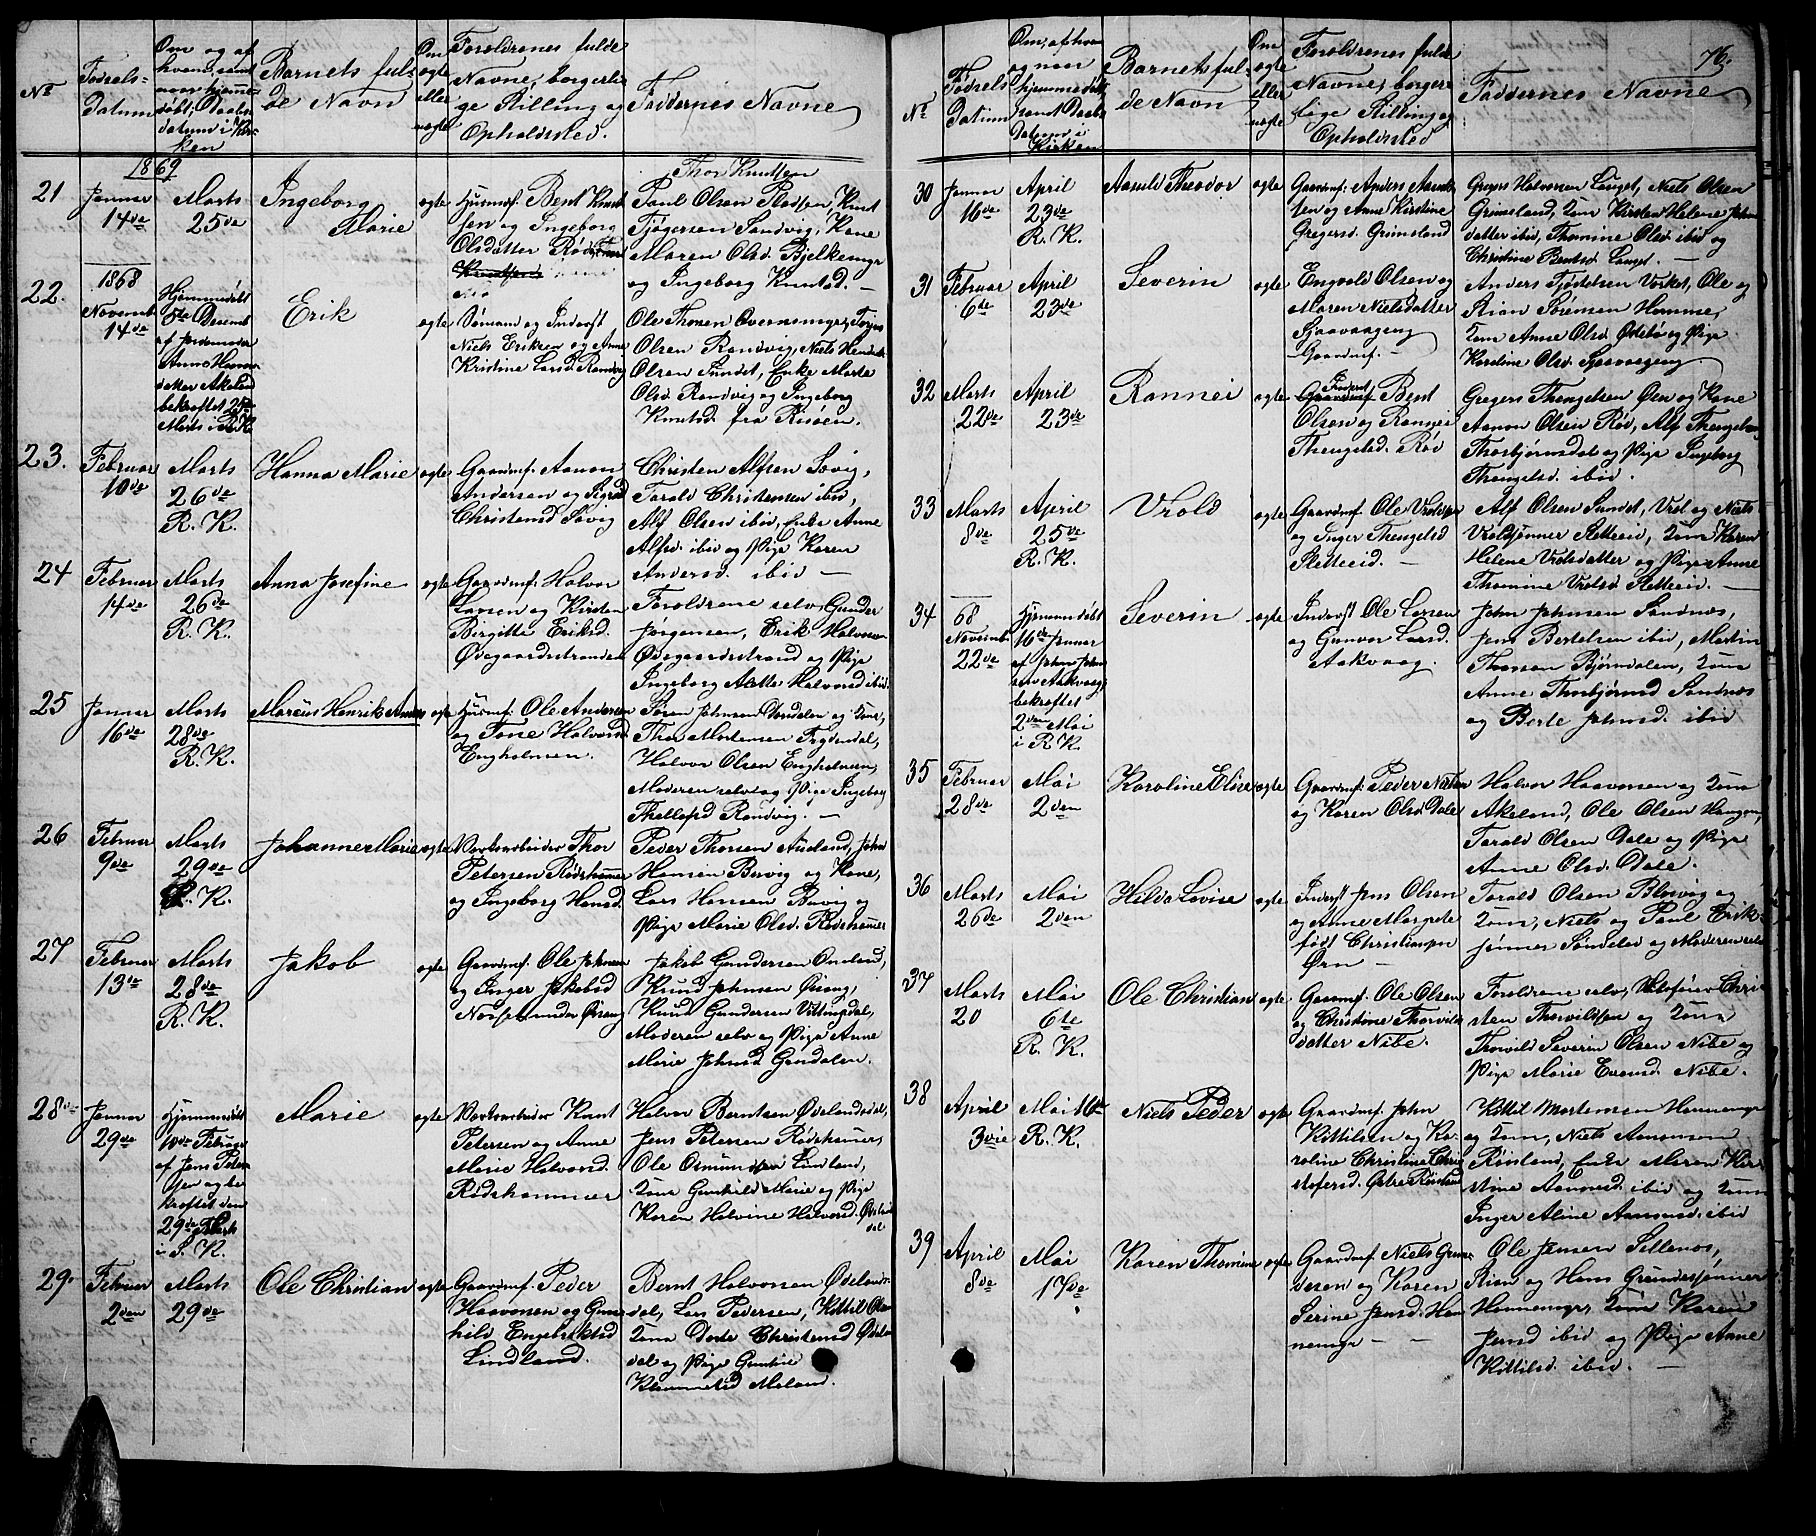 No
Fødsels-
Datum
Om og af
hvem, samt
naar hjemme-
døbt; Daabs-
datum i Kir-
ken
Barnets ful-
de Navn
Om
ægte
eller
uægte
Forældrenes fulde
Navne, borgerli-
ge Stilling og
Opholdssted.
Faddernes Navne
1869
21
Januar
14de
Marts
25de
Ingeborg
Marie
ægte
Husmd. Bent Knut-
sen og Ingeborg
Olsdatter
Thor Knutsen
Poul Olsen
Knut
Sandvig, Kone
Maren Olsd. Bjelkemyr
og Ingeborg Knutsd. —
22.
1868
Novemb.
14de
Hjemmedøbt
8de Decemb.
af Jordemoder
Anne Haavor-
datter Akeland
bekræftet 25de
Marts i R. K.
Erik
ægte
Sømand og Inderst
Niels Eriksen og Anne
Kristine Larsd. Randvig
Ole Thorsen
Olsen Randvig, Niels
Olsen Sundet, Enke Marte
Olsd. Randvig og Ingeborg
Knutsd. fra Risøen.
23.
Februar
10de
Marts
26de
R. K.
Hanna Marie
ægte
Gaardmd. Aanon
Andersen og Sigrid
Christensd. Sævig
Christen Alfsen Sævig,
Torald Christensen ibid,
Alf Olsen ibid, Enke Anne
Alfsd. ibid og Pige Karen
Andersd. ibid —
24
Februar
14de
Marts
26de
R. K.
Anna Josefine
ægte
Gaardmd. Halvor
Larsen og Kirsten
Birgitte Eriksd.
Ødegaardsstranden
Forældrene selv, Gunder
Jørgensen, Erik Halvorsen
Ødegaardsstrand og Pige
Ingeborg Alette Halvorsd. ibid.
25
Januar
16de
Marts
28de
R. K.
Marcus Henrik Anders
ægte
Husmd. Ole Andersen
og Tone Halvorsd.
Engholmen.
Søren Johnsen og Kone,
Thor Mortensen Frydendal,
Halvor Olsen Engholmen,
Moderen selv og Pige Ingeborg
Thellefsd. Randvig. —
26
Februar
9de
Marts
29de
S. K.
Johanne Marie
ægte
Værksarbeider Thor
Petersen Rødshammer
og Ingeborg Hansd.
Peder Thorsen Auland, John
Hansen Buvig og Kone,
Lars Hansen Buvig og
Pige Marie Olsd. Rødshamer
27
Februar
13de
Marts
28de
R. K.
Jakob
ægte
Gaardmd. Ole Johnsen
og Inger Jakobsd.
under Øisang
Jakob Gundersen Omland,
Knud Johnsen Øisang,
Knud Gundersen Vittingsdal,
Moderen selv og Pige Anne
Marie Johnsd. Gundalen.
28de
Januar
29de
Hjemmedøbt
10de Februar
af Jens Peter-
sen og be-
kræftet den
29de Marts
i S. K.
Marie
ægte
Værksarbeider Knut
Petersen og Anne
Marie Halvorsd.
Rødshammer
Halvor Berntsen Ødelandsdal,
Jens Petersen Rødshamer,
Ole Osmundsen Lindland,
Kone Gunhild Marie og Pige
Karen Halvine Halvorsd. Ødelands-
dal
29.
Februar
2den
Marts
29de
Ole Christian
ægte
Gaardmd. Peder
Haavorsen og Gun-
hild Engebriktsd.
Lindland.
Bernt Halvorsen Ødelands-
dal, Lars Pedersen, Kittil
Kone Dorte Christensd. Ødelands-
dal og Pige
76.
No
Fødsels
Datum
Om, af hvem
og naar
hjemmedøbt
samt Daabs-
Datum i
Kirken
Barnets ful-
de Navn
Om
ægte
eller
uægte
Forældrenes fulde
Navne, borger-
lige Stilling og
Opholdssted
Faddernes Navne
30
Januar
16de
April
23de
R. K.
Aasuld Theodor
ægte
Gaardmd. Anders Aasuld-
sen og Anne Kirstine
Gregersd. Grimsland
Gregers Halvorsen Lauget, Niels Olsen
Grimsland, Kone Kirsten Helene Johns-
datter ibid, Thomine Olsd. ibid og
Christine Bentsd. Lauget. —
31
Februar
6te
April
23de
Severin
ægte
Engvald Olsen og
Maren Nielsdatter
Sjaavaageng
Gaardmd. —
Anders Fjeldsen Vasket, Ole og
Stian Sørensen Hommen,
Kone Anne Olsd. Ødebø og Pige
Karoline Olsd. Sjaavaageng
32
Marts
22de
April
23de
Rannei
ægte
Inderst
Gaardmd. Bent
Olsen og Rannei
Thengelsd. Rød
Gregers Thengelsen Øen og Kone
Aanon Olsen Rød, Alf Thengelsen
Thorbjørnsdal og Pige Ingeborg
Thengelsd. ibid.
33
Marts
8de
April
25de
R. K.
Vrold
ægte
Gaardmd. Ole Vroldsen
og Inger Thengelsd.
Sletteeid. —
Alf Olsen Sundet, Vrol og Niels
Vroldsønner Sletteeid, Kone Karen
Helene Vroldsdatter og Pige Anne
Thomine Vroldsd. Sletteeid. —
34
68
Novemb.
22de
Hjemmedøbt
16de Januar
af John John-
sen Aakvaag
bekræftet
2den Mai
i R. K.
Severin
ægte
Inderst Ole Larsen
og Gunvor Larsd.
Aakvaag.
John Johnsen Sandnes,
Jens Bertelsen ibid, Martin
Thorsen Bjørndalen, Kone
Anne Thorbjørnsd. Sandnes
og Berte Johnsd. ibid
35
Februar
28de
Mai
2den
Karoline Elise
ægte
Gaardmd. Peder Nielsen
og Karen Olsd. Dale
Halvor Haavorsen og Kone
Akeland, Ole Olsen Haugen,
Torald Olsen Dale og Pige
Anne Olsd. Dale.
36
Marts
26de
Mai
2den
Hilda Lovise
ægte
Inderst Jens Olsen
og Anne Margrete
født Christiansen
Ørn —
Torald Olsen Blesvig og
Kone, Niels og Paul Erik-
sønner Søndeled og Moderen selv
37
Marts
20
Mai
6te
R. K.
Ole Christian
ægte
Gaardmd. Ole Olsen
og Christine Thorvilds-
datter Nibe.
Forældrene selv, Chri-
sten Thorvildsen og Kone
Thorvild Severin Olsen Nibe og
Pige Marie Evensd. Nibe.
38
April
3die
Mai 16de
R. K.
Niels Peder
ægte
Gaardmd. John
Kittilsen og Ka-
roline Christine Chri-
stofersd. Østre Risland
Kittil Mortensen Hannemyr
og Kone, Niels Aanonsen
Risland, Enke Maren Kir-
stine Aanonsd. ibid og Kone
Inger Aline Aanonsd. ibid
39
April
8de
Mai
17de
Karen Thomine
ægte
Gaardmd. Niels Gun-
dersen og Karen
Serine Jensd. Han-
nemyr — —
Ole Jensen Sillenes,
Stian og Hans Gundersønner
Hannemyr, Kone Karen
Jensd. ibid og Pige Anne
Kittilsd. ibid. —